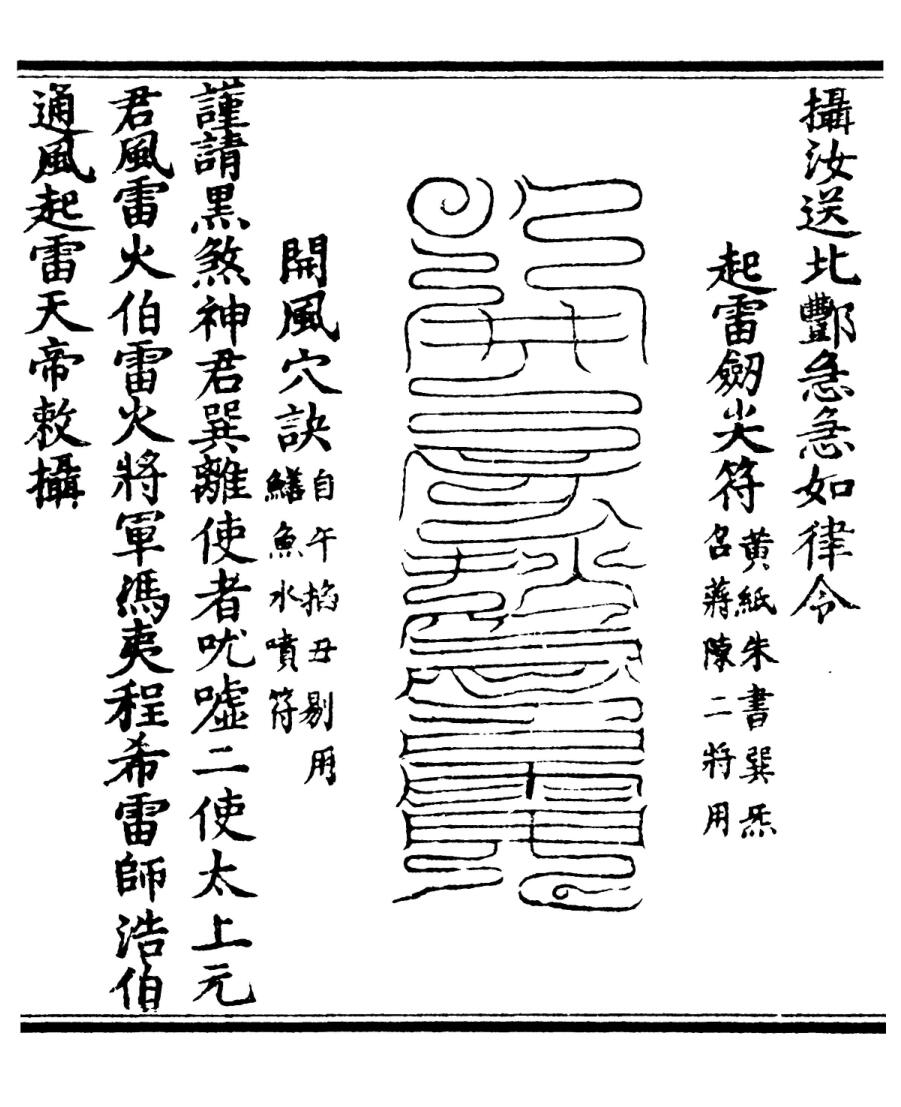 攝汝送北酆急急如律令
起雷劒尖符
黃紙朱書巽炁
召蔣陳二將用
開風穴訣
自午掐丑剔用
鱔魚水噴符
謹請黑煞神君巽離使者吠噓二使太上元
君風雷火伯雷火將軍馮夷程希雷師浩伯
通風起雷天帝敕攝